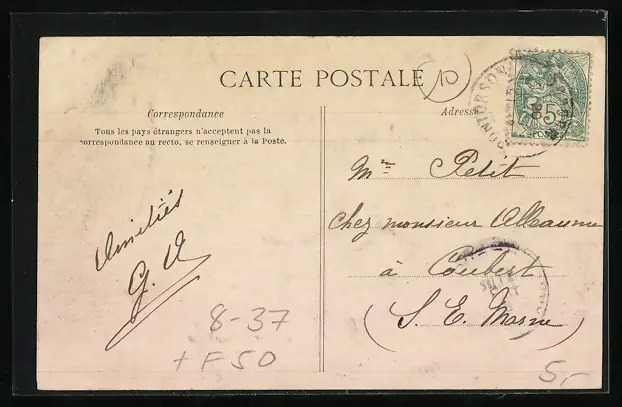 CARTE POSTALE
10
Correspondance
Adresse
Tous les pays étrangers n'acceptent pas la
correspondance au recto, se renseigner à la Poste.
PONTORSON
5
POSTE
Mme Petit
chez monsieur Alleaume
à Coubert
(S. E. Marne)
Amitiés
G. A
8-37
+F50
5,-